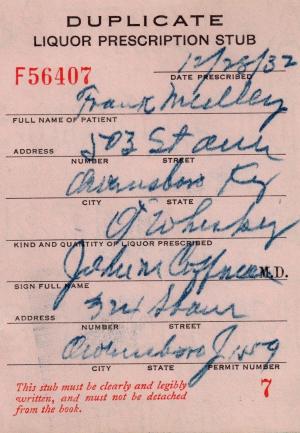 DUPLICATE
LIQUOR PRESCRIPTION STUB
F56407 12/28/32
DATE PRESCRIBED
Frank
FULL NAME OF PATIENT
503 St Ann
ADDRESS NUMBER STREET
Owensboro Ky
CITY STATE
Whiskey
KIND AND QUANTITY OF LIQUOR PRESCRIBED
John M Coffman M.D.
SIGN FULL NAME
ADDRESS NUMBER STREET
Owensboro
CITY STATE PERMIT NUMBER
This stub must be clearly and legibly
written, and must not be detached
from the book.
7